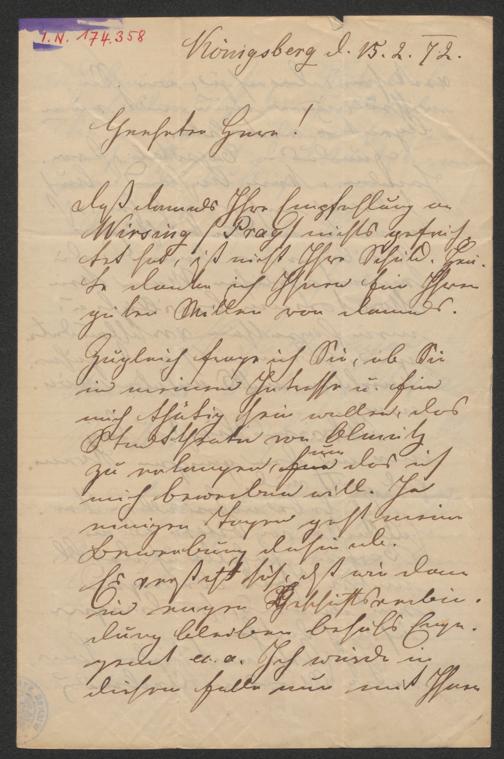 I.N. 174.358
Königsberg d. 15.2.72.
Geehrter Herr!
Daß damals Ihre Empfehlung an
Wirsing (Prag) nichts gefruch-
tet hat, ist nicht Ihre Schuld. Heu-
te danke ich Ihnen für Ihren
guten Willen von damals.
Zugleich frage ich Sie, ob Sie
in meinem Intresse u. für
mich thätig sein wollen, das
Stadttheater von Olmütz
zu erlangen, um das ich
mich bewerben will. In
einigen Tagen geht meine
Bewerbung dahin ab.
Es versteht sich, daß wir dann
in enger Geschäftsverbin-
dung bleiben behufs Enga-
gement
Ich würde in
diesem Falle nur mit Ihnen